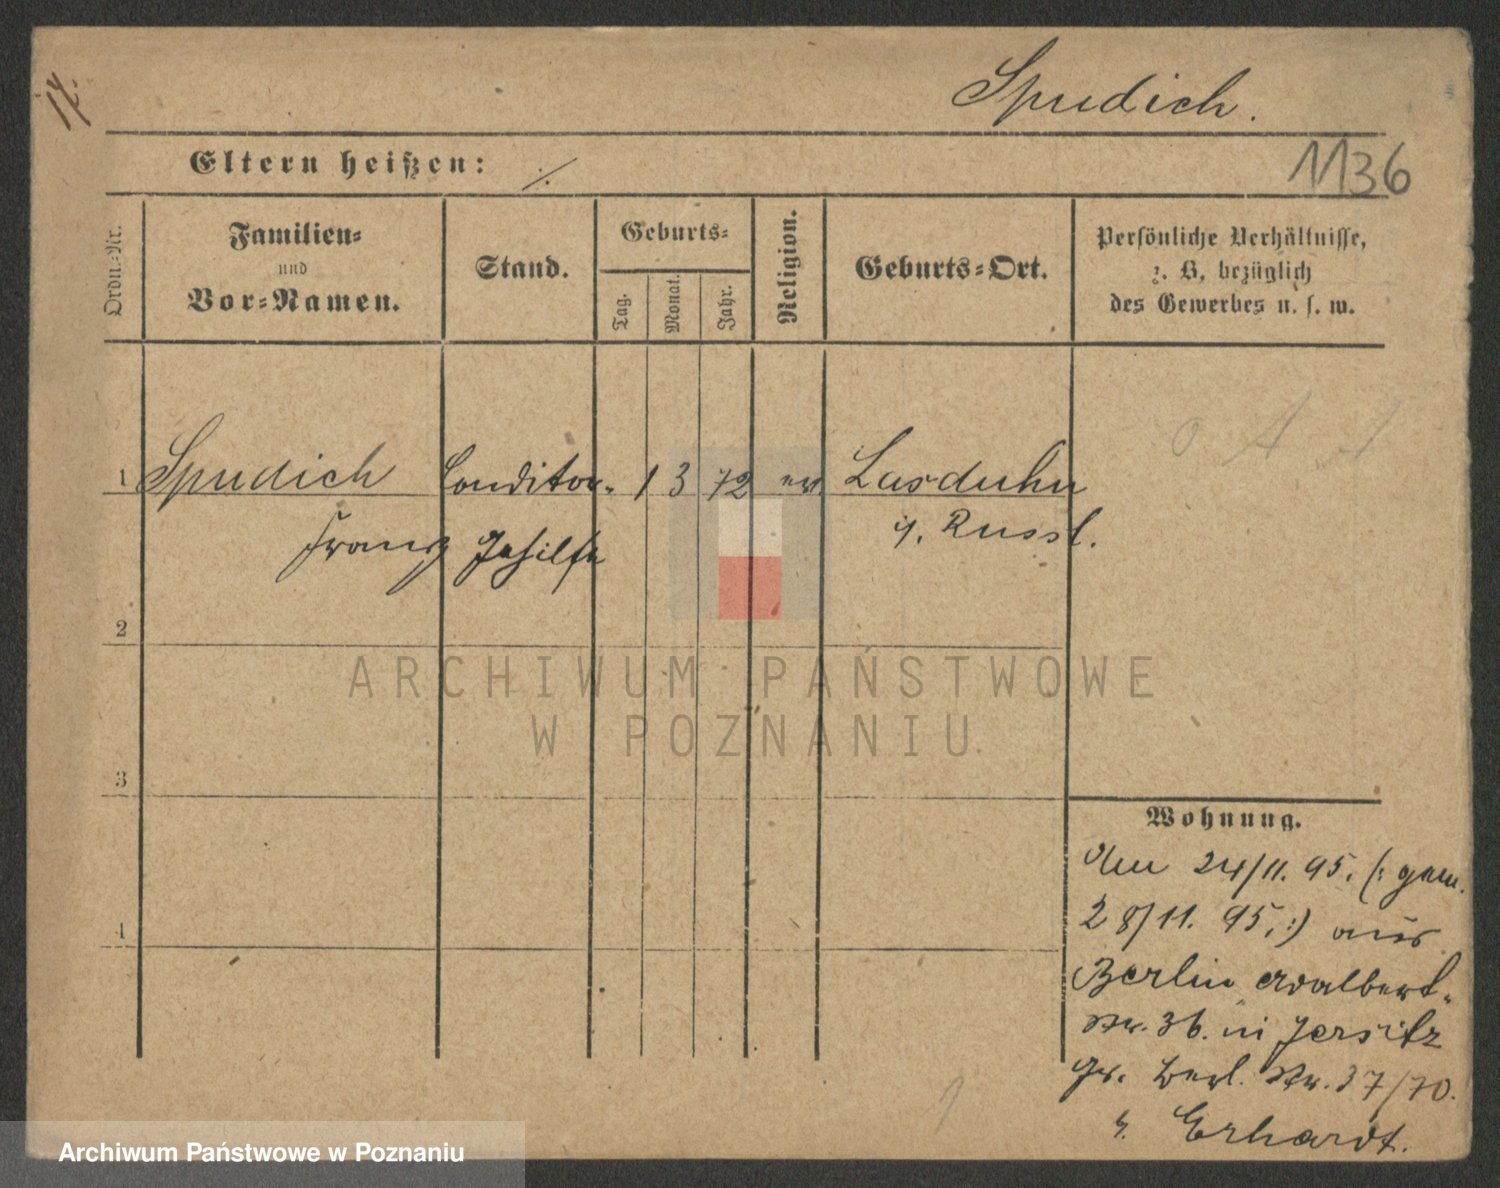 17.
Spudich.
1136
Eltern heißen: ·/·
Ordn.-Nr.
Familien-
und
Vor-Namen.
Stand.
Geburts-
Tag.
Monat.
Jahr.
Religion.
Geburts-Ort.
Persönliche Verhältnisse,
z. B. bezüglich
des Gewerbes u. s. w.
1 Spudich Conditor- 1 3 72 ev Lasduhn
Franz Gehilfe i. Russl.
2
3
4
ARCHIWUM PAŃSTWOWE
W POZNANIU
Wohnung.
Am 24/11. 95. (: gem.
28/11. 95. :) aus
Berlin Adalbert-
str. 36. in Jersitz
gr. Berl. Str. 37/70.
b. Erhardt.
Archiwum Państwowe w Poznaniu